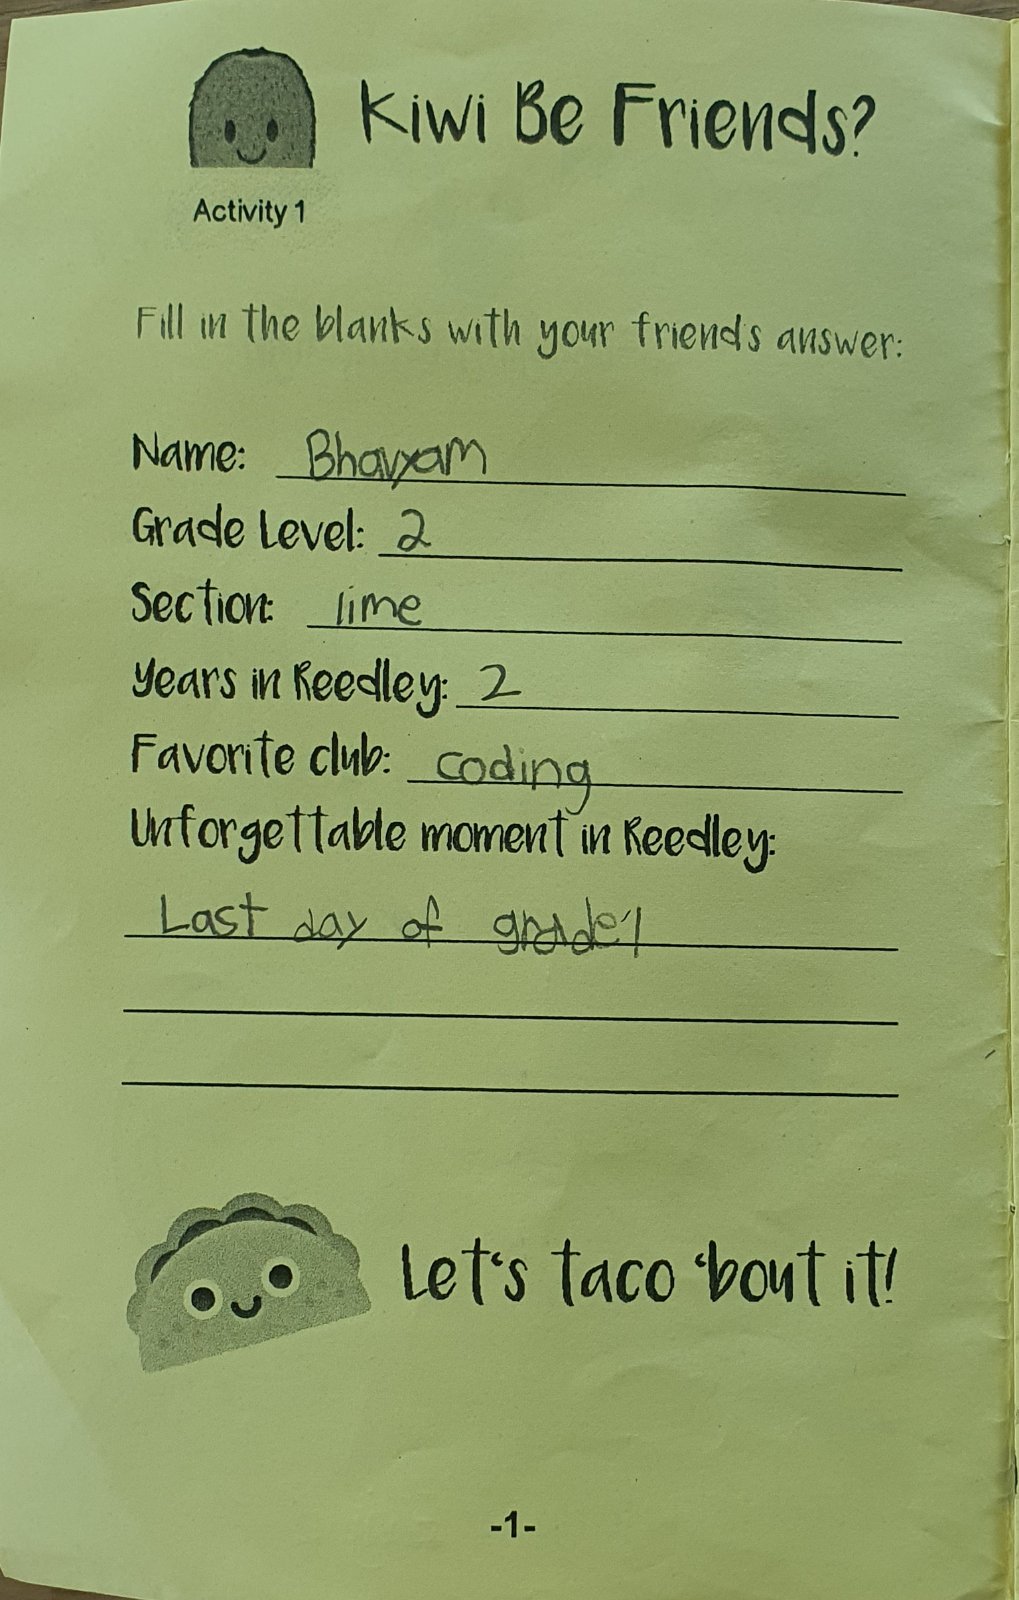 Kiwi Be Friends?
Activity 1
Fill in the blanks with your friends answer:
Name: Bhavyam
Grade Level: 2
Section: lime
Years in Reedley: 2
Favorite club: coding
Unforgettable moment in Reedley:
Last day of grade 1
Let's taco 'bout it!
-1-